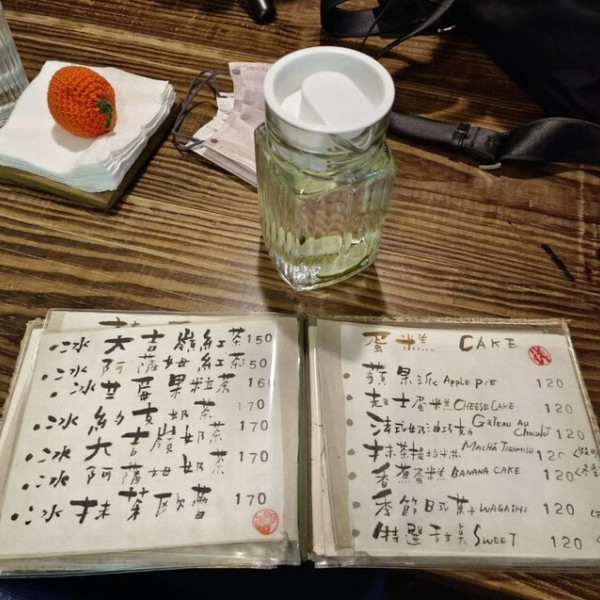 冰 大吉嶺紅茶 150
冰 阿薩姆紅茶 150
冰 草莓果粒茶 160
冰 約克奶茶 170
冰 大吉嶺奶茶 170
冰 阿薩姆奶茶 170
冰 抹茶歐蕾 170
蛋糕 CAKE
蘋果派 APPLE PIE 120
起士蛋糕 CHEESE CAKE 120
法式奶油巧克力 GATEAU AU CHOCOLAT 120
抹茶提拉米蘇 MACHA TIRAMISU 120
香蕉蛋糕 BANANA CAKE 120
季節日式菓子 WAGASHI 120
特選甜菓 SWEET 120